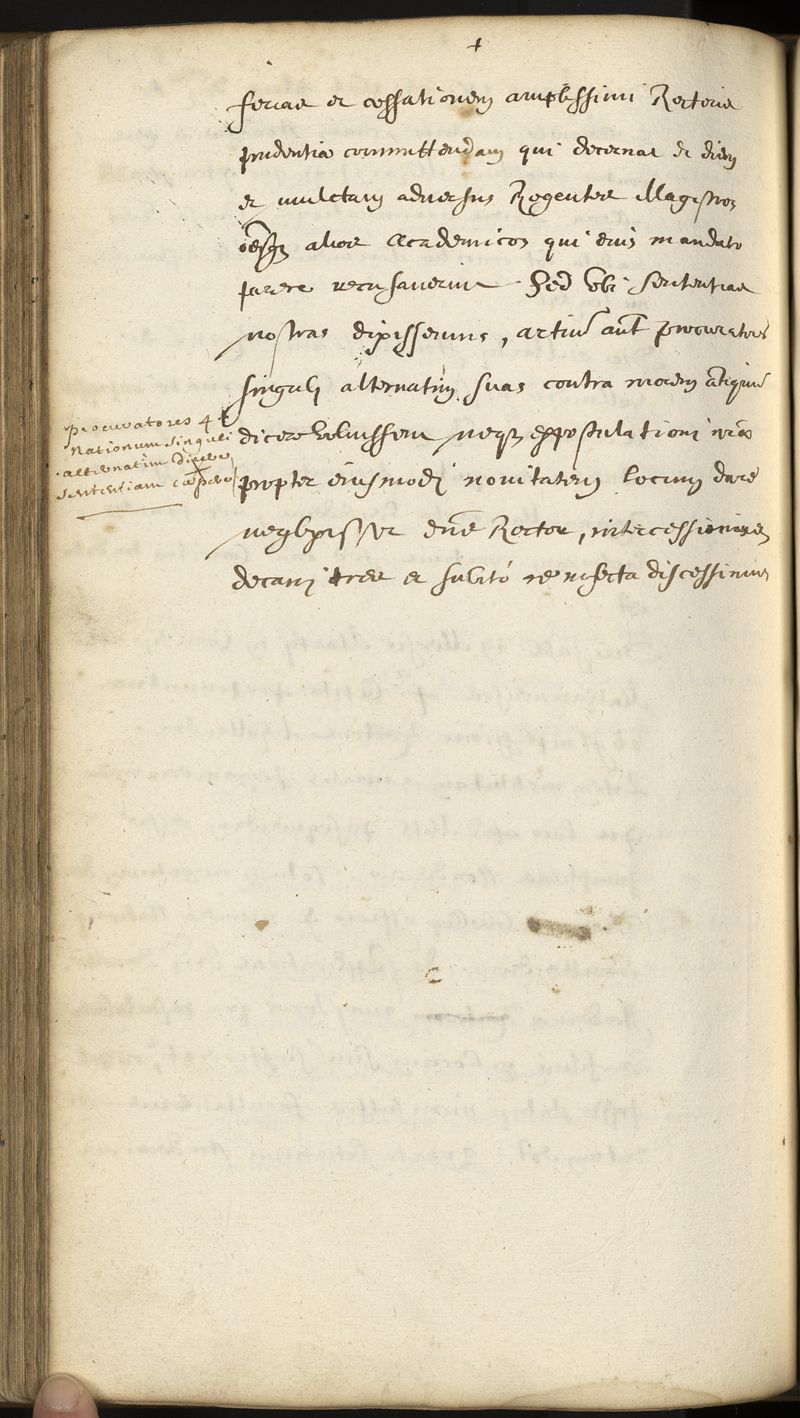 +
feriae et cessationem amplissimi Rectoris
prudentiae committendam qui decernat et diem
et mulctam adversus Regentes Magistros
oẽsq alios Academicos qui eius mandato
parere recusaverint. Sed ubi sententias
nostras dixissemus, artiũ aut̃ procuratores
singuli alternatim suas contra morem ãtiquũ
dicere voluissent neq expostulationi nr̃ae
propter eiusmodi novitatem locum dare
neglexisset Rector, intercessimus
decani tres et subitó re infecta discessimus
procuratores 4
nationum singuli
alternatim dicere
sententiam cœpere